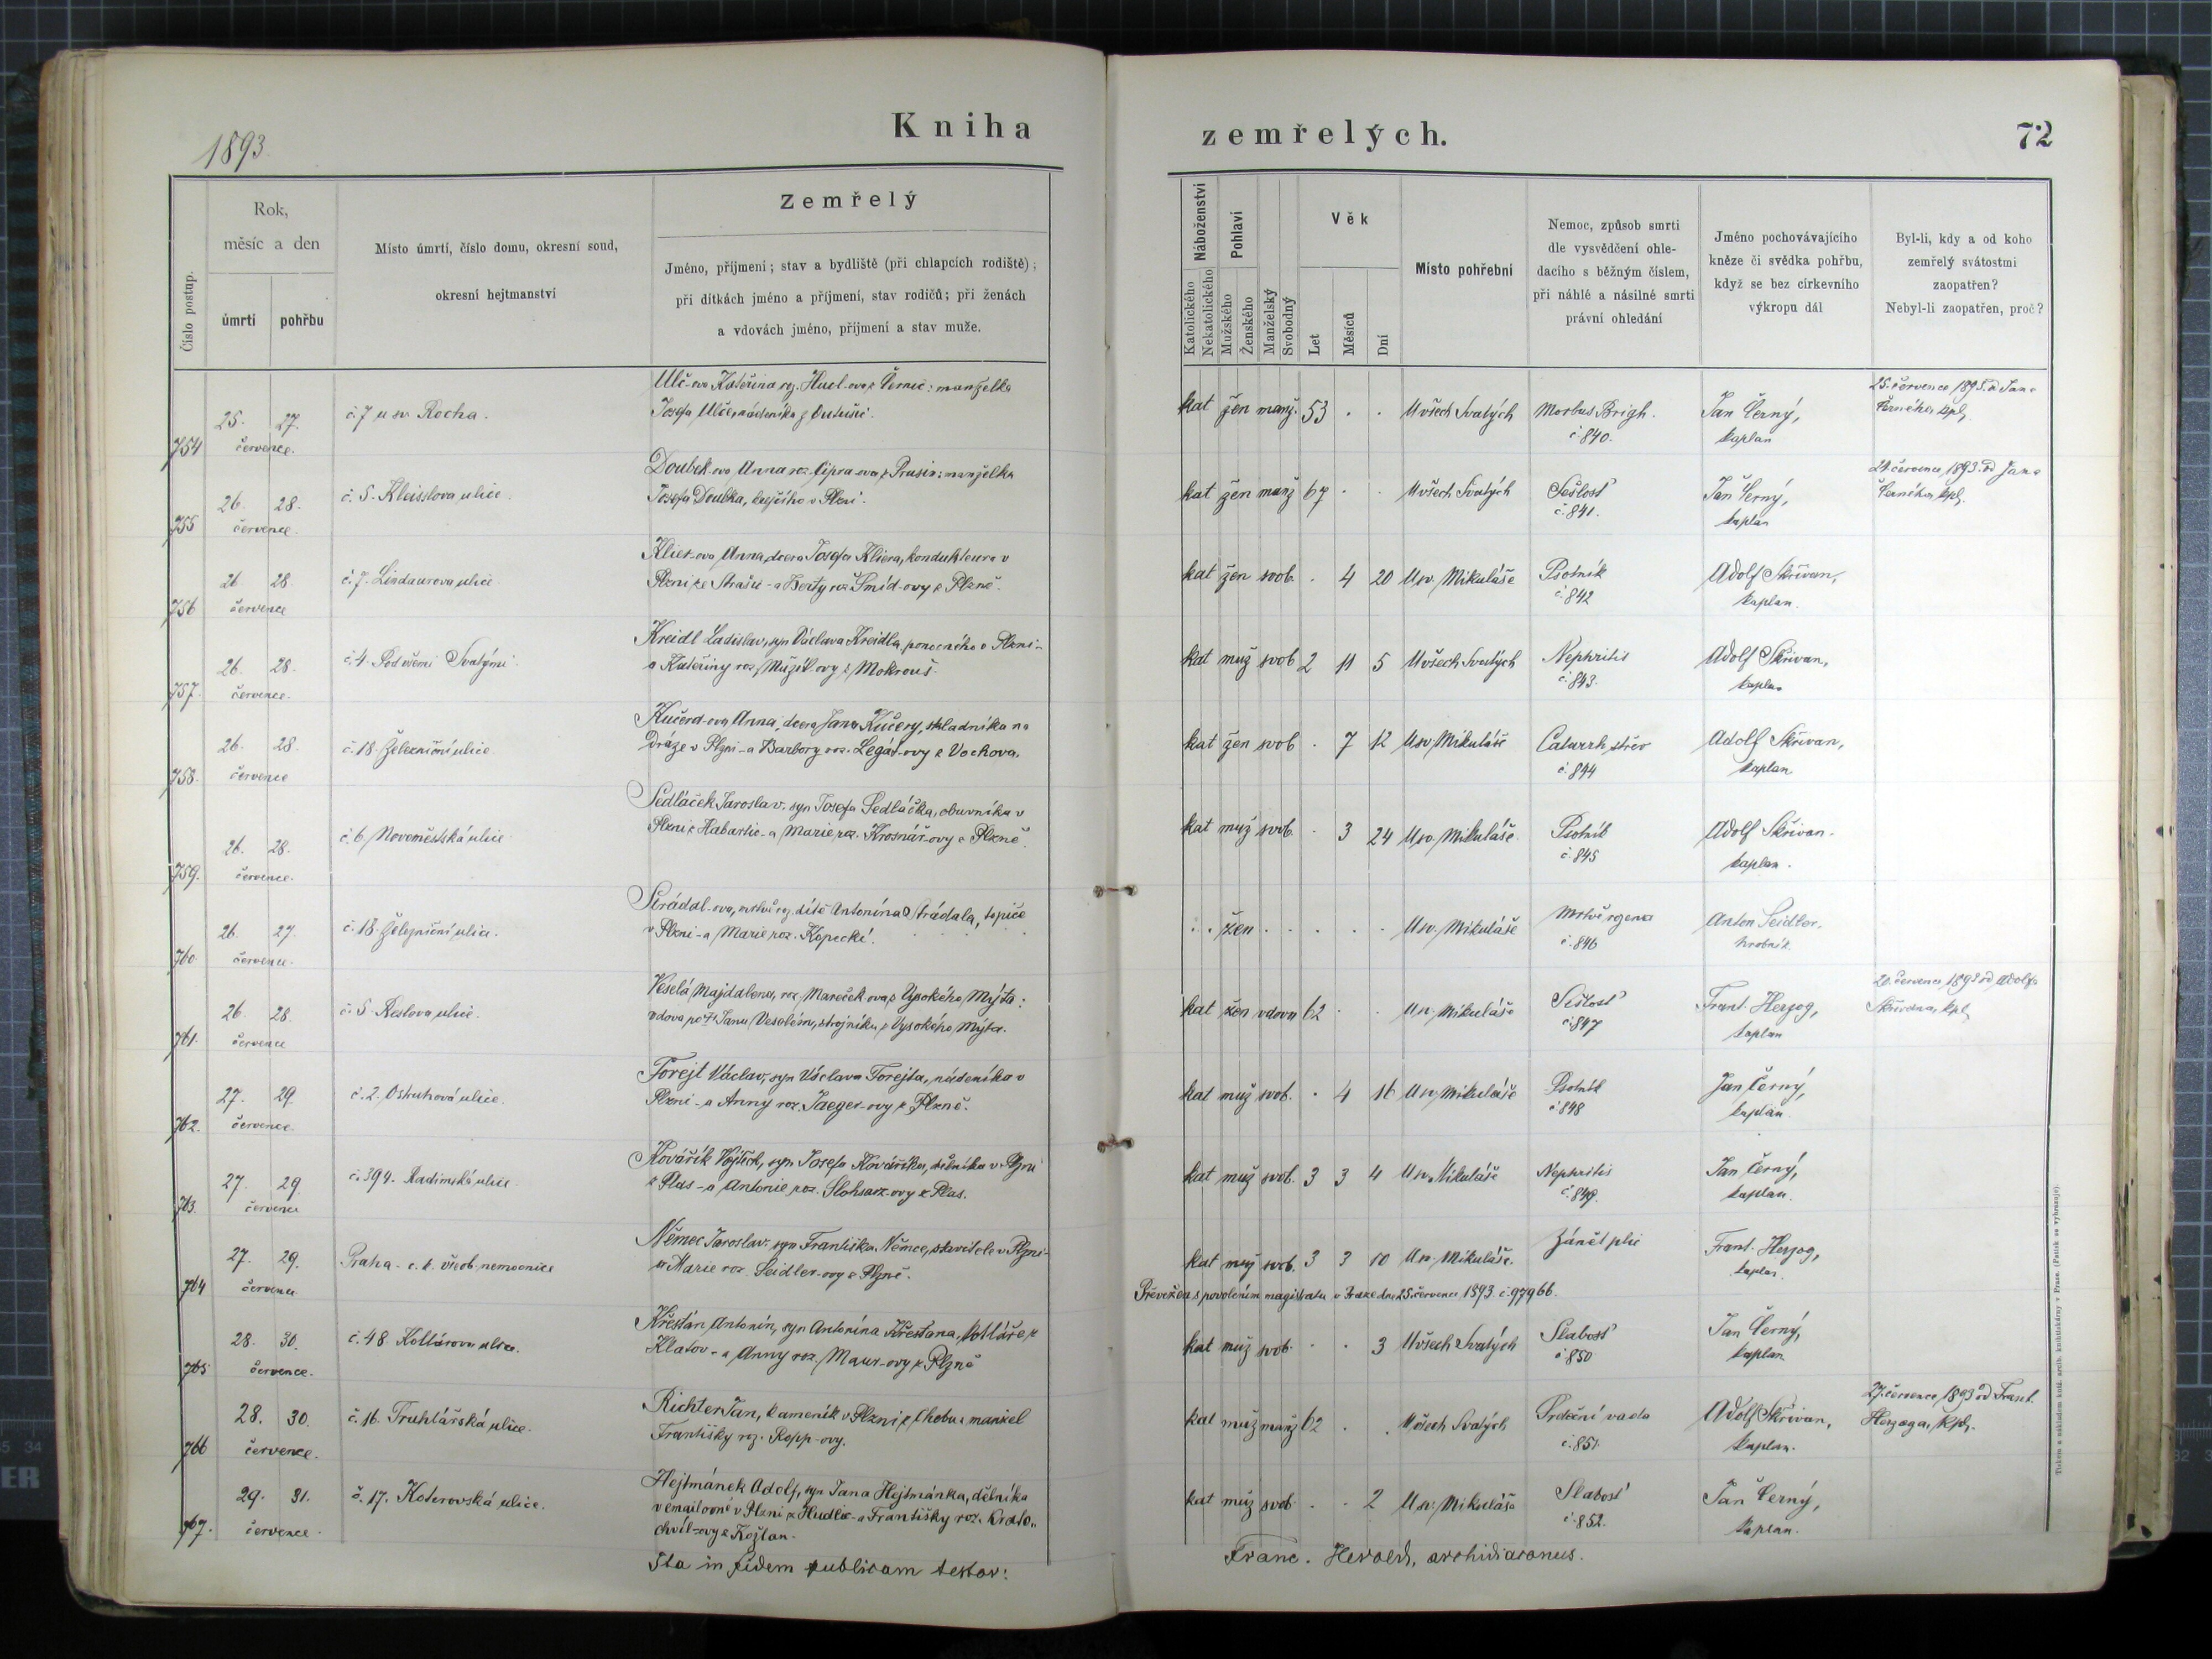 1893.
Kniha
zemřelých.
72
Číslo postup.
Rok,
měsíc a den
úmrtí
pohřbu
Místo úmrtí, číslo domu, okresní soud,
okresní hejtmanství
Zemřelý
Jméno, příjmení; stav a bydliště (při chlapcích rodiště);
při dítkách jméno a příjmení, stav rodičů; při ženách
a vdovách jméno, příjmení a stav muže.
Náboženství
Katolického
Nekatolického
Pohlaví
Mužského
Ženského
Manželský
Svobodný
Věk
Let
Měsíců
Dní
Místo pohřební
Nemoc, způsob smrti
dle vysvědčení ohle-
dacího s běžným číslem,
při náhlé a násilné smrti
právní ohledání
Jméno pochovávajícího
kněze či svědka pohřbu,
když se bez církevního
výkropu dál
Byl-li, kdy a od koho
zemřelý svátostmi
zaopatřen?
Nebyl-li zaopatřen, proč?
754
25. 27.
července.
č. 7 u sv. Rocha.
Ulč-ova Kateřina roz. Hucl-ova z Černic: manželka
Josefa Ulče, nádeníka z
kat žen manž. 53 . . U všech Svatých Morbus Brigh. Jan Černý,
č 840. kaplan
25. července 1893 od Jana
Černého, kpl.
755
26. 28.
července.
č. 5. Kleisslova ulice.
Doubek-ova Anna roz. Cipra-ova z Prusin: manželka
Josefa Doubka, krejčího v Plzni.
kat žen manž 67 . . U všech Svatých Sešlosť Jan Černý,
č. 841. kaplan
24. července 1893. od Jana
Černého, kpl.
756
26 28.
července
č. 7. Lindaurova ulice
Klier-ova Anna, dcera Josefa Kliera, kondukteura v
Plzni ze Strašic - a Berty roz. Šmíd-ovy z Plzně.
kat žen svob. . 4 20 U sv. Mikuláše Psotník Adolf Skřivan,
č. 842 kaplan.
757.
26. 28.
července.
č. 4. Pod všemi Svatými.
Kreidl Ladislav, syn Václava Kreidla, ponocného v Plzni -
a Kateřiny roz. Mužík-ovy z Mokrouš.
kat muž svob 2 11 5 U všech Svatých Nephritis Adolf Skřivan,
č. 843. kaplan
758.
26. 28.
července
č. 18. Železniční ulice
Kučera-ova Anna, dcera Jana Kučery, skladníka na
Dráze v Plzni - a Barbory roz. Legát-ovy z Vochova.
kat žen svob . 7 12 U sv. Mikuláše Catarrh střev Adolf Skřivan,
č. 844 kaplan
759.
26. 28.
července.
č. 6. Novoměstská ulice
Sedláček Jaroslav. syn Josefa Sedláčka, obuvníka v
Plzni z Habartic - a Marie roz. Krosnář-ovy z Plzně.
kat muž svob. . 3 24 U sv. Mikuláše. Psotník Adolf Skřivan.
č. 845 kaplan.
760.
26. 27.
července.
č. 18. Železniční ulice.
Strádal-ova, mrtvě roz. dítě Antonína Strádala, topiče
v Plzni - a Marie roz. Kopecké.
. . žen . . . . . U sv. Mikuláše Mrtvě rozena Anton Seidler,
č. 846 hrobník.
761.
26. 28.
července
č. 5. Reslova ulice.
Veselá Majdalena, roz. Mareček-ova z Vysokého Mýta:
vdova po † Janu Veselém, strojníku z Vysokého Mýta.
kat žen vdova 62 . . U sv. Mikuláše Sešlosť Frant. Herzog,
č. 847 kaplan
20. července 1893 od Adolfa
Skřivana, kpl.
762.
27. 29.
července.
č. 2. Ostruhová ulice.
Forejt Václav, syn Václava Forejta, nádeníka v
Plzni - a Anny roz. Jaeger-ovy z Plzně.
kat muž svob. . 4 16 U sv. Mikuláše Psotník Jan Černý,
č 848 kaplan.
763.
27. 29.
července
č. 394. Radimská ulice.
Kovářík Vojtěch, syn Josefa Kováříka, dělníka v Plzni
z Plas - a Antonie roz. ovy z Plas.
kat muž svob. 3 3 4 U sv. Mikuláše Nephritis Jan Černý,
č. 849. kaplan.
764
27. 29.
července
Praha - c. k. všeob. nemocnice
Němec Jaroslav. syn Františka Němce, stavitele v Plzni -
a Marie roz. Seidler-ovy z Plzně.
kat muž svob. 3 3 10 U sv. Mikuláše. Zánět plic Frant. Herzog,
kaplan.
Převežen s povolením magistratu v Praze dne 25. července 1893. č. 97966.
765
28. 30.
července.
č. 48. Kollárova ulice.
Křesťan Antonín, syn Antonína Křesťana, kotláře z
Klatov - a Anny roz. Maur-ovy z Plzně
kat muž svob . . 3 U všech Svatých Slabosť Jan Černý,
č 850 kaplan
766
28. 30.
července.
č. 16. Truhlářská ulice.
Richter Jan, kameník v Plzni z Chobu: manžel
Františky roz. Ropp-ovy.
kat muž manž 62 . . U všech Svatých Srdeční vada Adolf Skřivan,
č. 851. kaplan.
27. července 1893 od Frant.
Herzoga, kpl.
767.
29. 31.
července.
č. 17. Koterovská ulice.
Hejtmánek Adolf, syn Jana Hejtmánka, dělníka
v emailovně v Plzni z Hudlic - a Františky roz. Krato„
chvíl-ovy z Kojtan.
kat muž svob . . 2 U sv. Mikuláše Slabosť Jan Černý,
č. 852. kaplan.
Ita in fidem publicam testor:
Franc. Herold, archidiaconus.